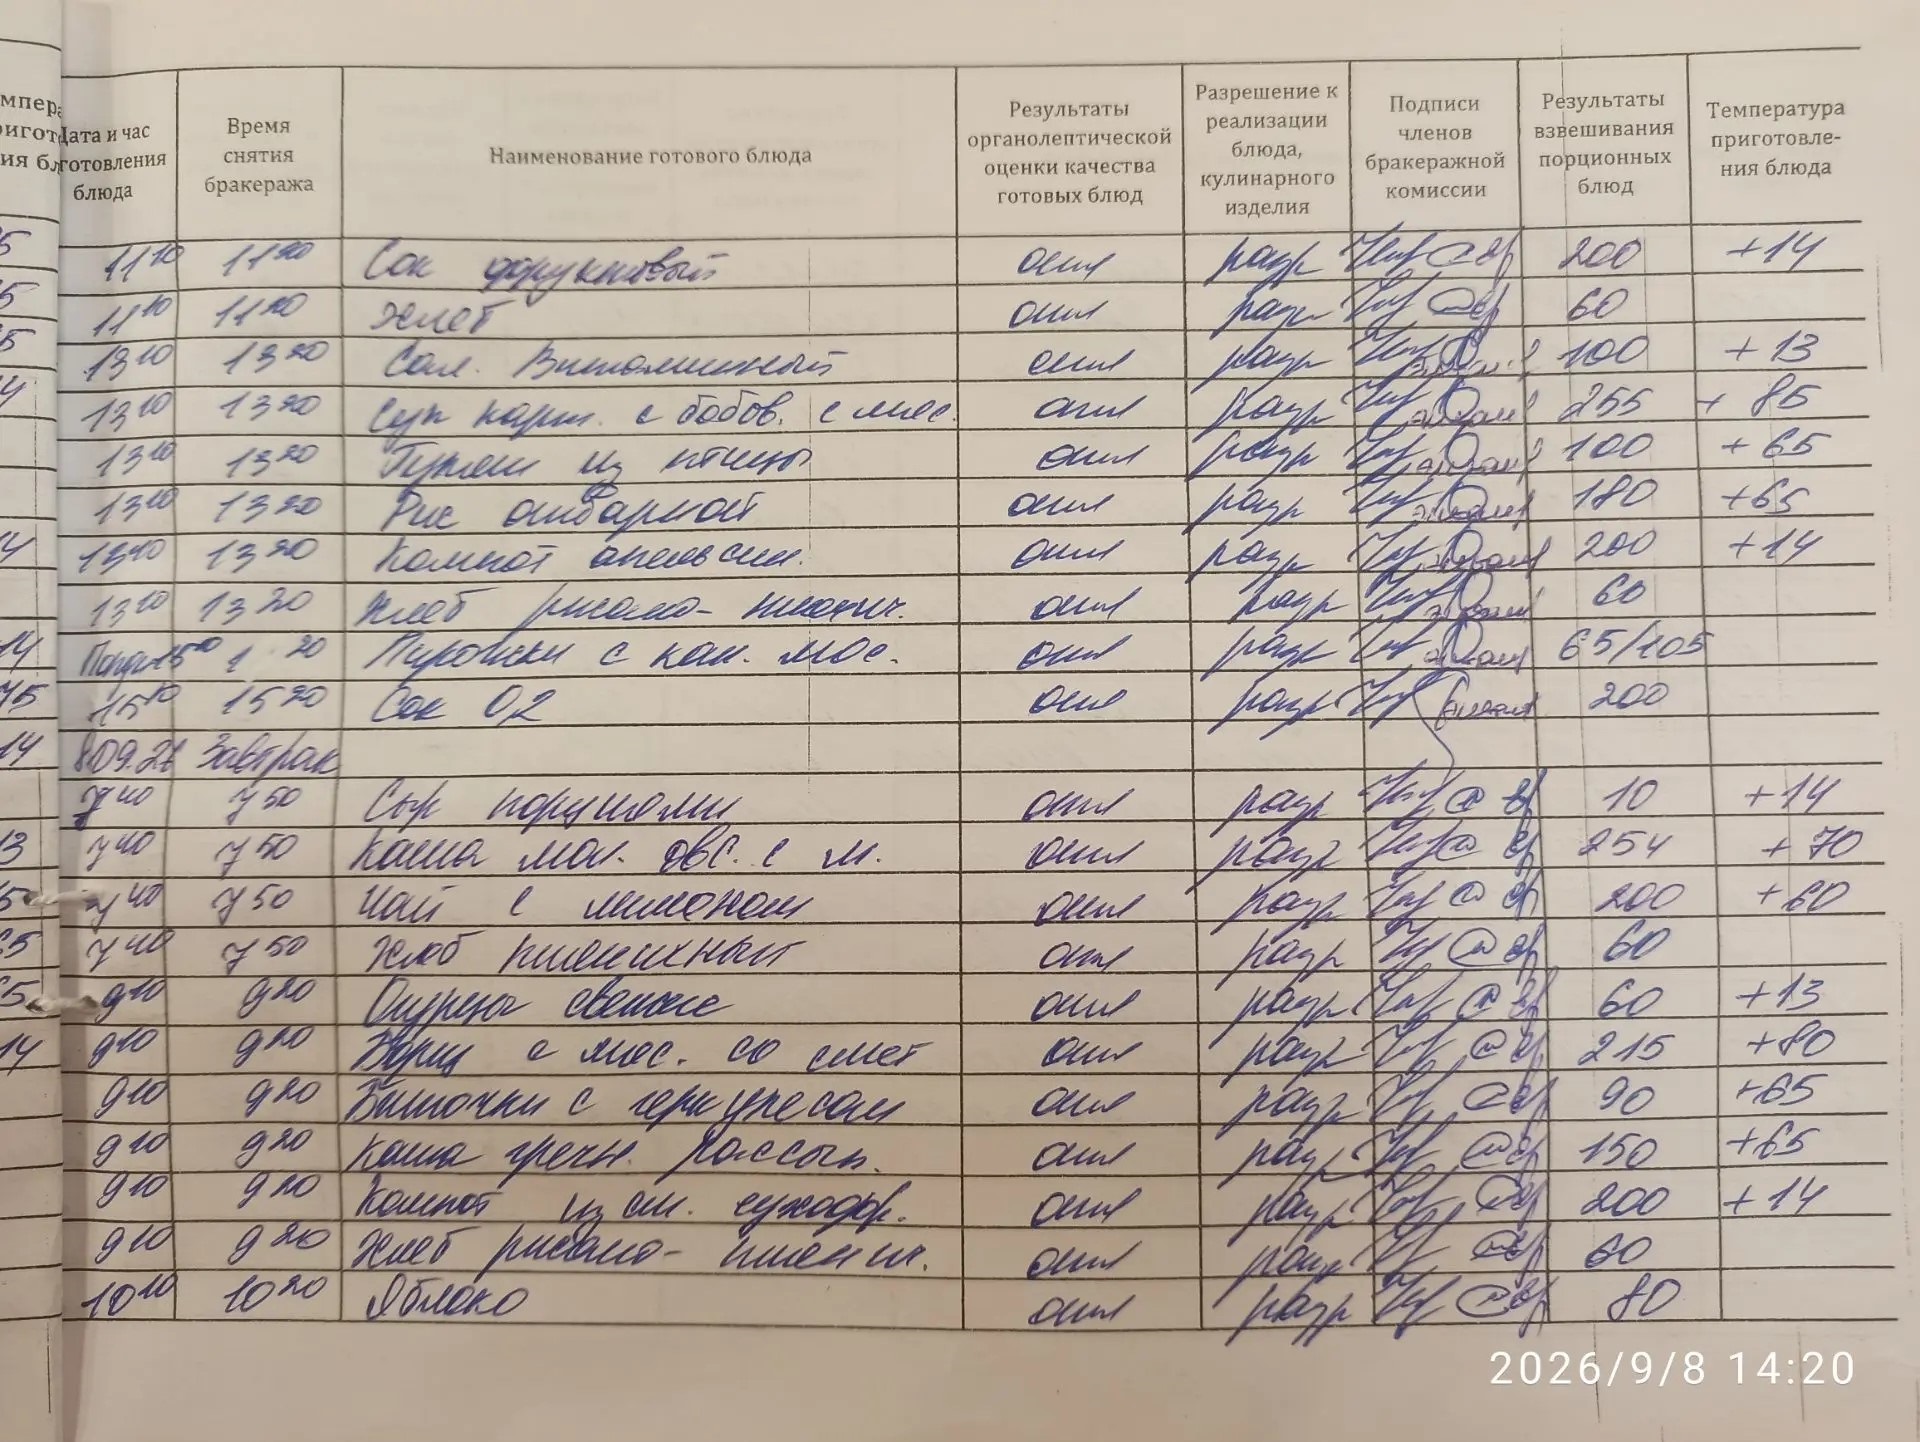 Дата и час готовления блюда
Время снятия бракеража
Наименование готового блюда
Результаты органолептической оценки качества готовых блюд
Разрешение к реализации блюда, кулинарного изделия
Подписи членов бракеражной комиссии
Результаты взвешивания порционных блюд
Температура приготовле-ния блюда
11 10 11 20 Сок фруктовый отл разр 200 +14
11 10 11 20 Хлеб отл разр 60
13 10 13 20 Сал. Витаминный отл разр 100 +13
13 10 13 20 Суп карт. с бобов. с мяс. отл разр 255 + 85
13 10 13 20 Гуляш из птицы отл разр 100 + 65
13 10 13 20 Рис отварной отл разр 180 +65
13 10 13 20 Компот апельсин. отл разр 200 +14
13 10 13 20 Хлеб ржано-пшенич. отл разр 60
15 10 20 Пирожки с кап. мяс. отл разр 65/105
15 10 15 20 Сок 0,2 отл разр 200
8.09.26 Завтрак
7 40 7 50 Сыр порциями отл разр 10 +14
7 40 7 50 Каша мол. овс. с м. отл разр 254 + 70
7 40 7 50 Чай с лимоном отл разр 200 +60
7 40 7 50 Хлеб пшеничный отл разр 60
9 10 9 20 Огурцы свежие отл разр 60 +13
9 10 9 20 Борщ с мяс. со смет отл разр 215 +80
9 10 9 20 Биточки с геркулесом отл разр 90 +65
9 10 9 20 Каша гречн. рассып. отл разр 150 +65
9 10 9 20 Компот из см. сухофр. отл разр 200 +14
9 10 9 20 Хлеб ржано-пшенич. отл разр 60
10 10 10 20 Яблоко отл разр 80
2026/9/8 14:20